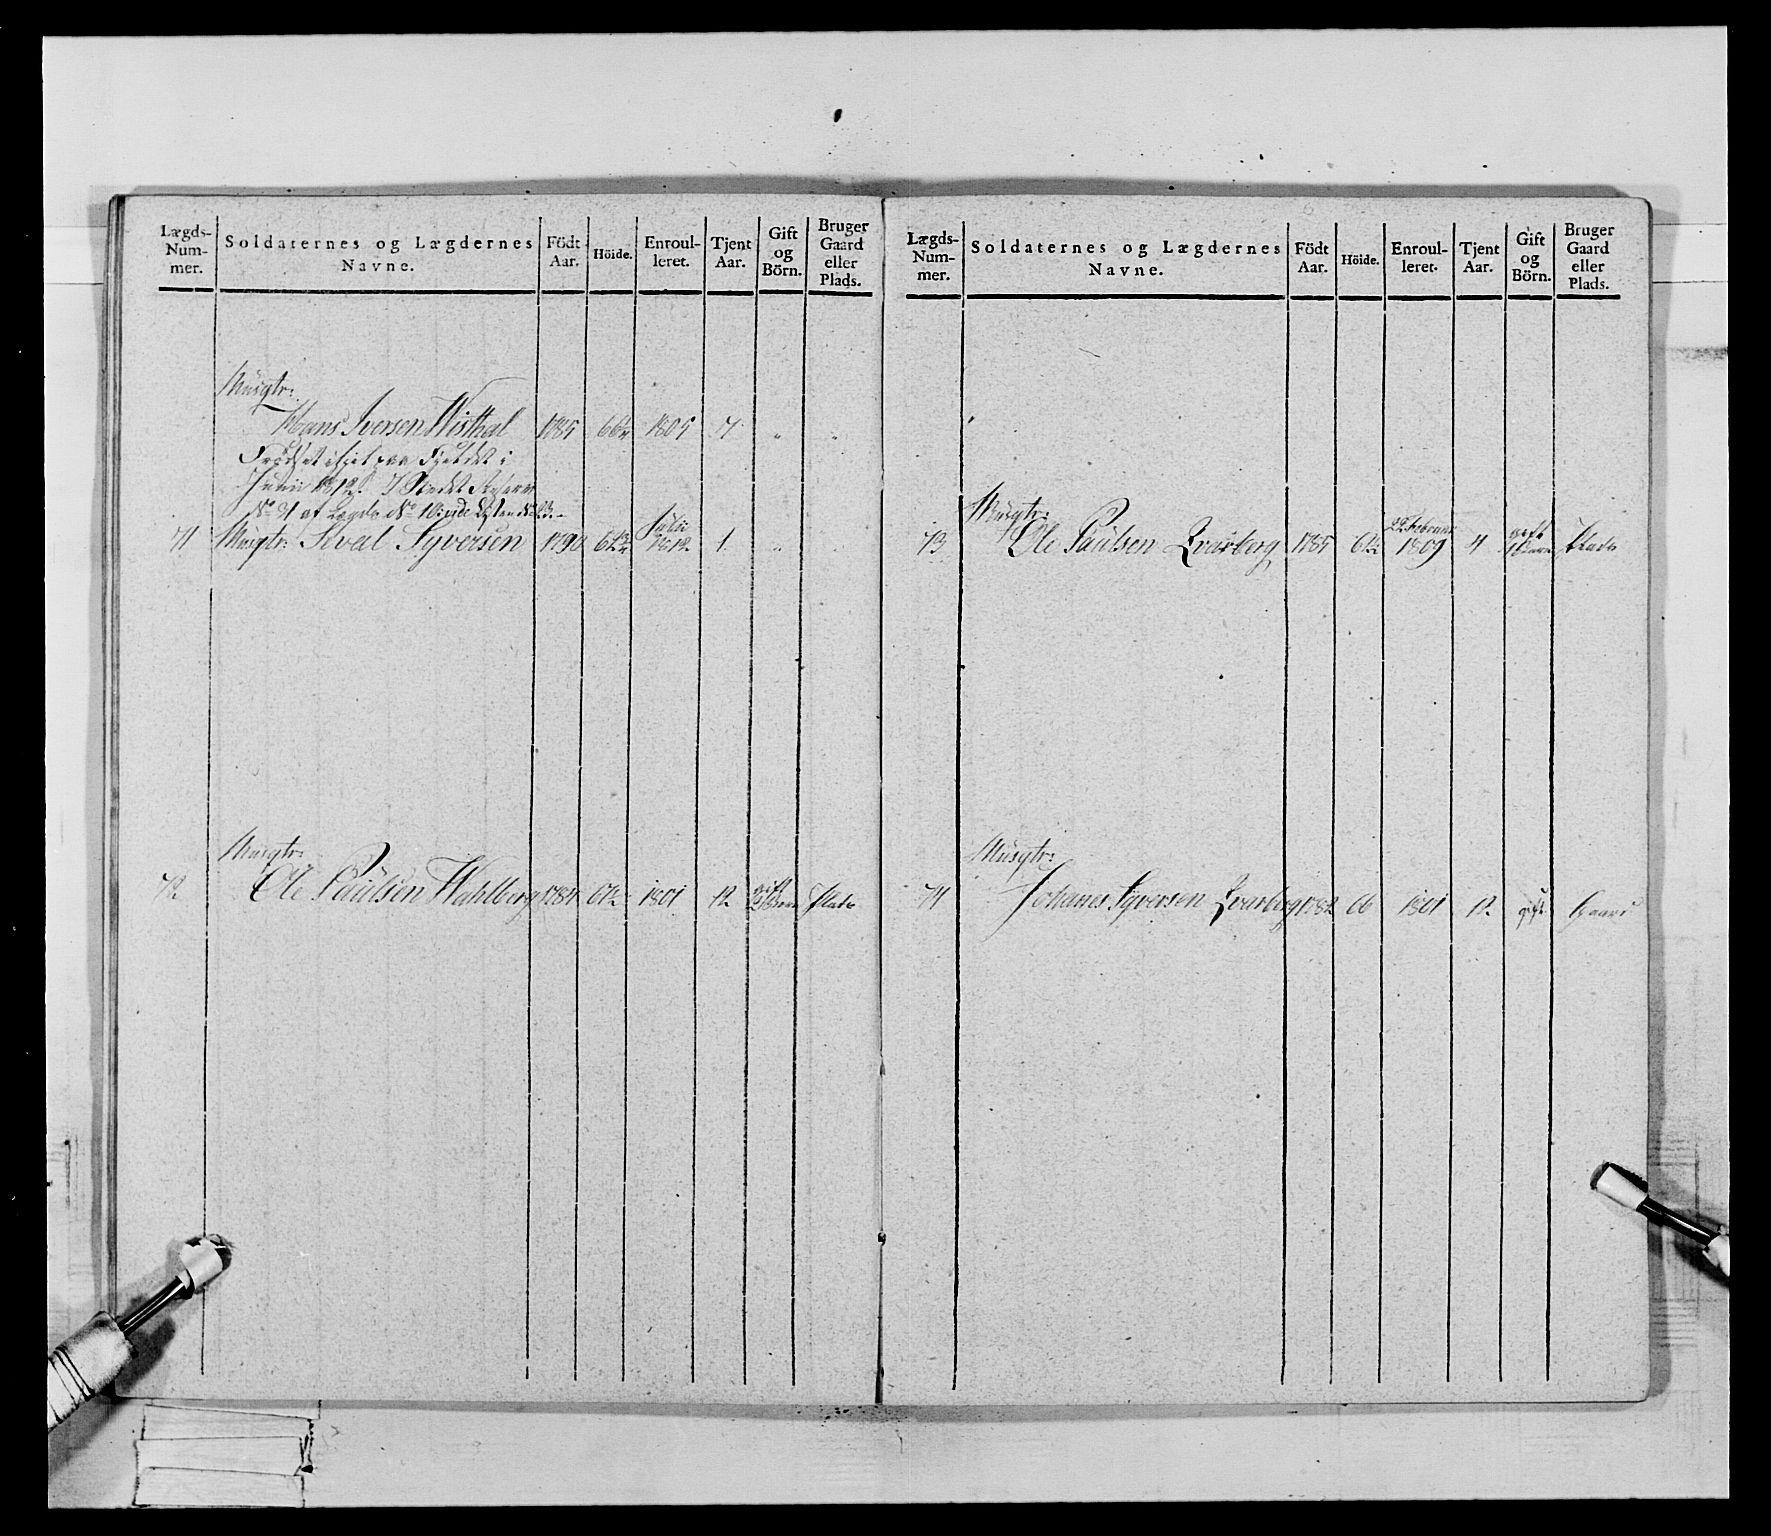 Lægds-Num-mer.
Soldaternes og Lægdernes Navne.
Födt Aar.
Höide.
Enroul-leret.
Tjent Aar.
Gift og Börn.
Bruger Gaard eller Plads.
Musqtr:
Hans Iversen Wisthal 1785 1805 7 " "
i
Junii 1812. I Stedet
No af Lægds No
71 Musqtr: Sival Syversen 1790 Julii 1812 1 " "
Musqtr:
72 Ole Paulsen Wahlberg 1784 1801 12 gift Plads
Lægds-Num-mer.
Soldaternes og Lægdernes Navne.
Födt Aar.
Höide.
Enroul-leret.
Tjent Aar.
Gift og Börn.
Bruger Gaard eller Plads.
Musqtr:
73 Ole Paulsen Qvarberg 1785 1809 4 gift Plads
Musqtr:
74 Johanes Syversen Qvarberg 1782 66 1801 12 gift Gaard